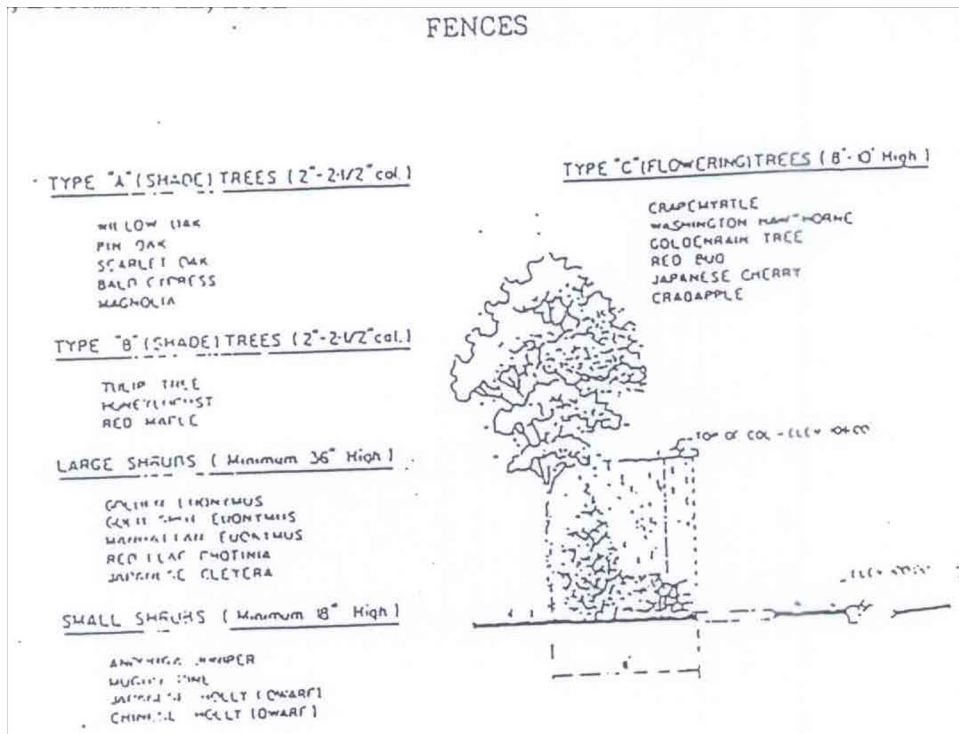 FENCES
TYPE "A" (SHADE) TREES (2"-2-1/2" cal.)
WILLOW OAK
PIN OAK
SCARLET OAK
BALD CYPRESS
MAGNOLIA
TYPE "B" (SHADE) TREES (2"-2-1/2" cal.)
TULIP TREE
HONEYLOCUST
RED MAPLE
LARGE SHRUBS (Minimum 36" High)
GOLDEN EUONYMUS
EUONYMUS
MANHATTAN EUONYMUS
RED LEAF PHOTINIA
JAPANESE CLEYERA
SMALL SHRUBS (Minimum 18" High)
ANDORRA JUNIPER
MUGHO PINE
JAPANESE HOLLY (DWARF)
CHINESE HOLLY (DWARF)
TYPE "C" (FLOWERING) TREES (8'-10' High)
CRAPEMYRTLE
WASHINGTON HAWTHORNE
GOLDENRAIN TREE
RED BUD
JAPANESE CHERRY
CRABAPPLE
TOP OF COL - ELEV
ELEV